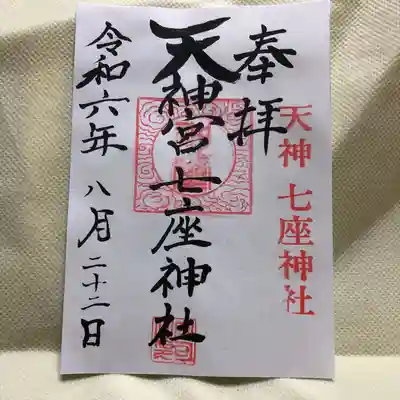 天神 七座神社
奉拝
天神宮七座神社
令和六年 八月二十二日